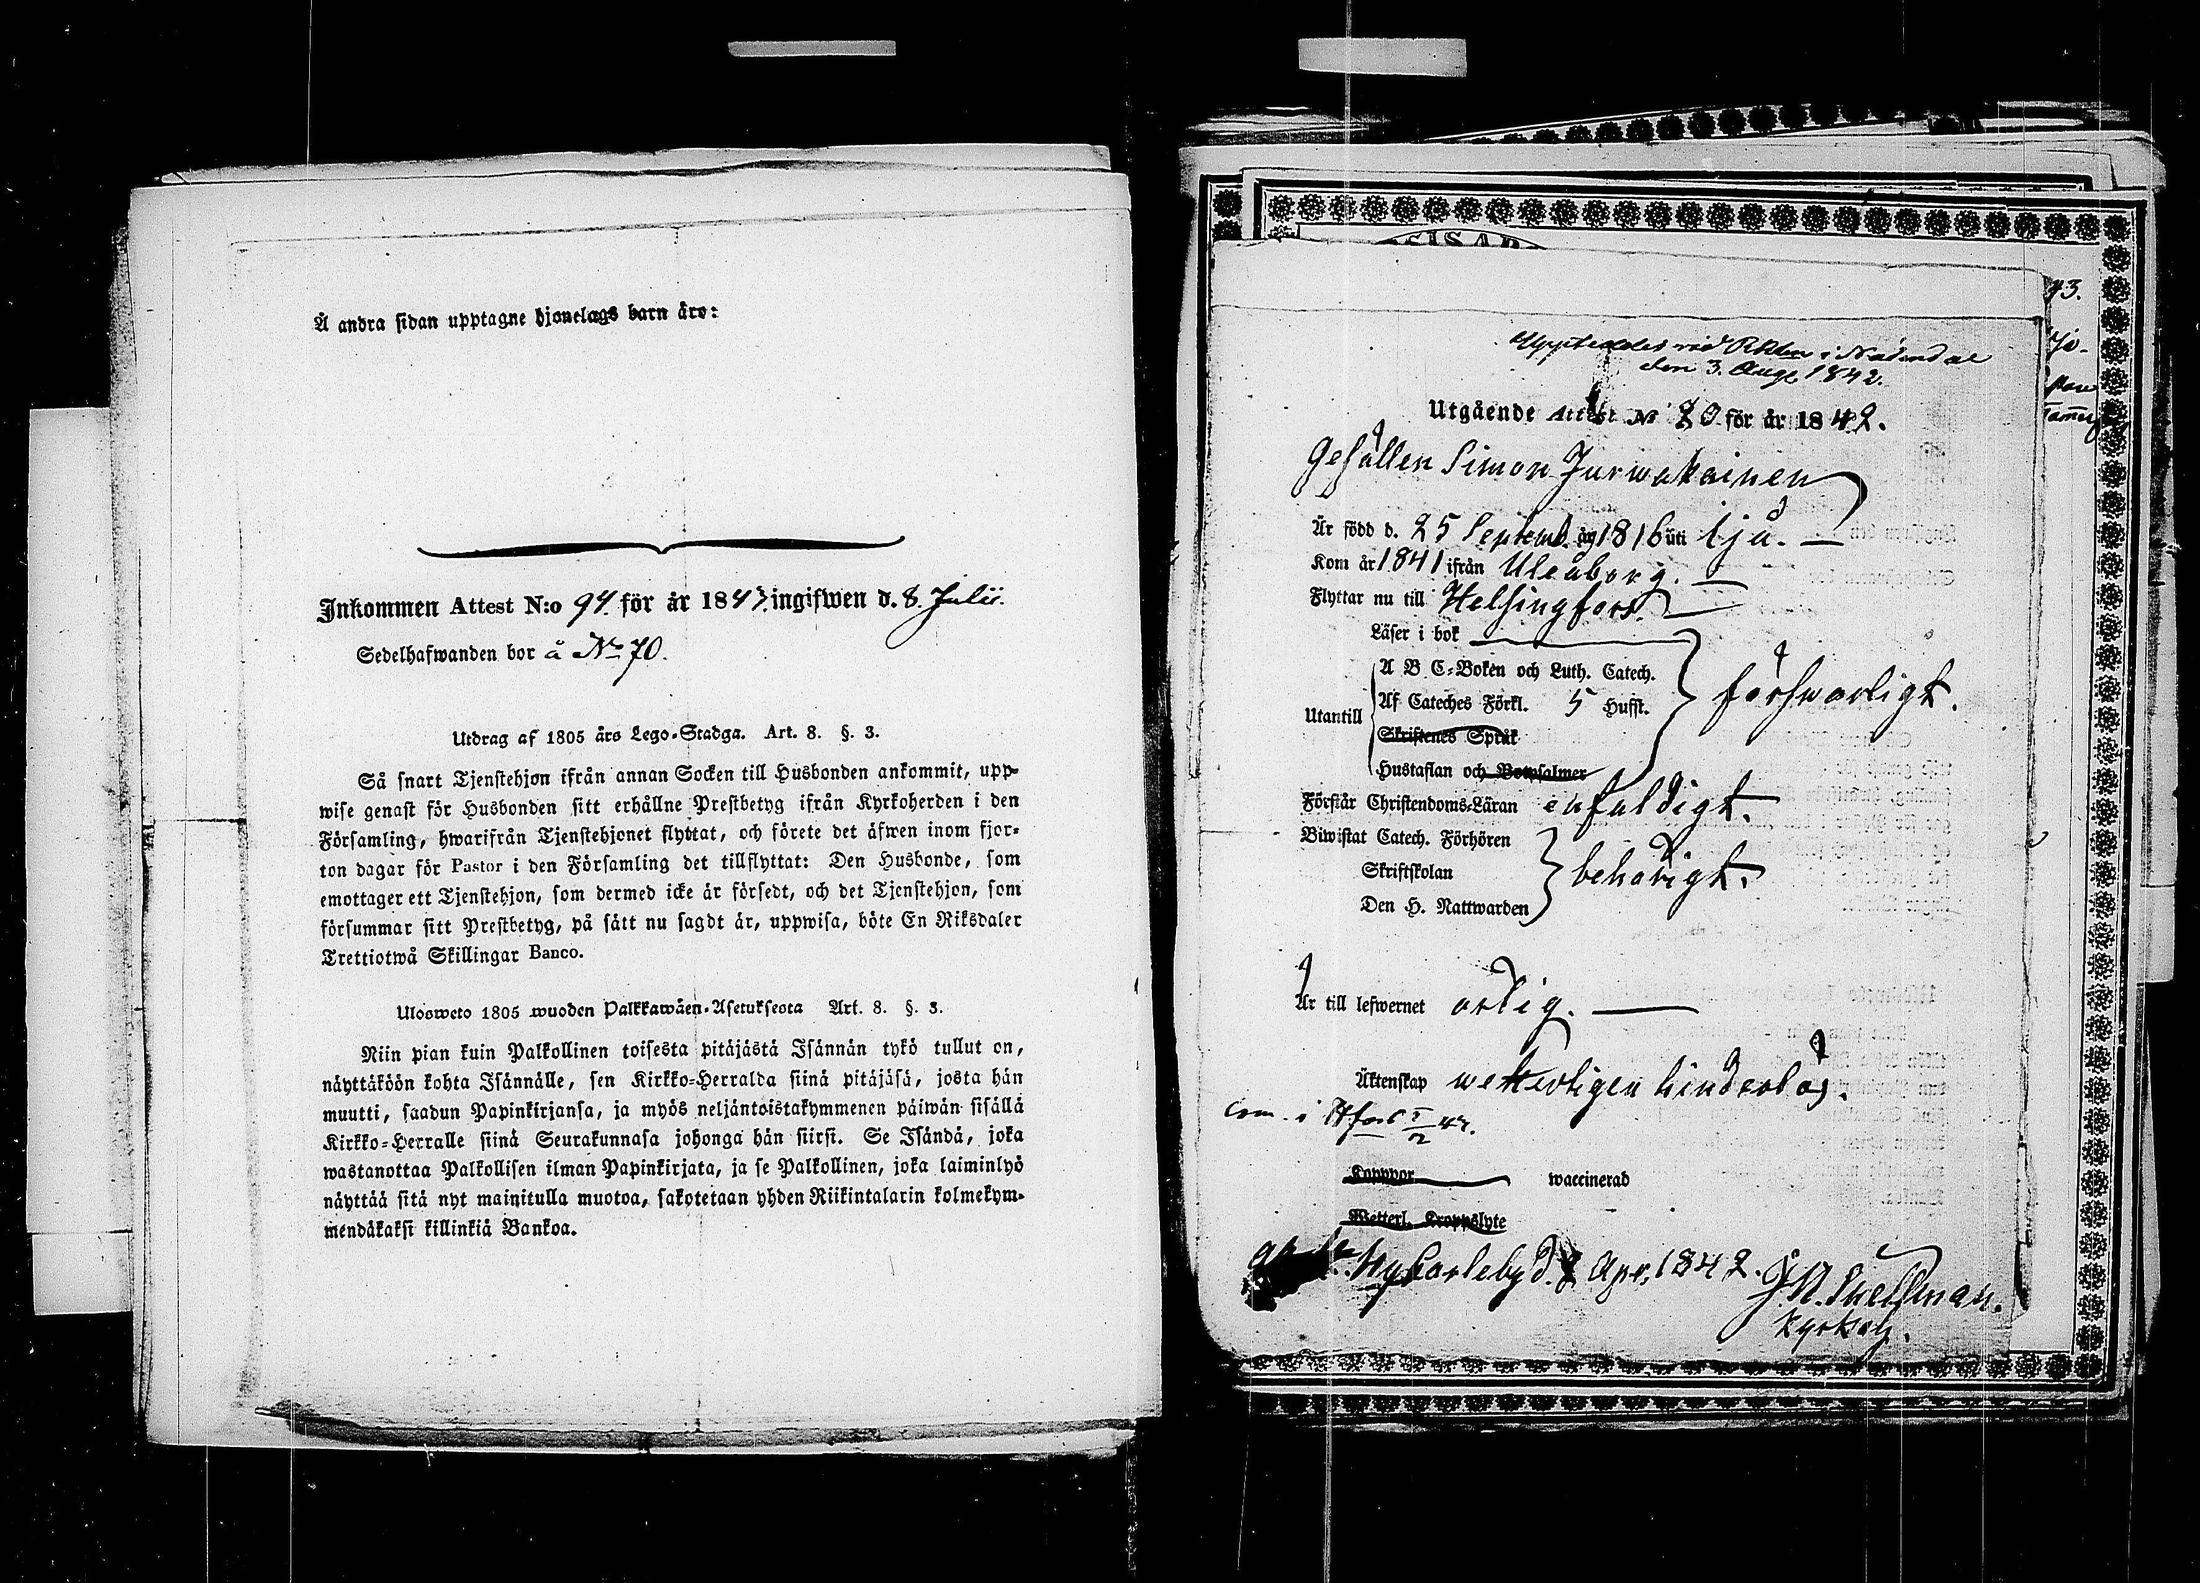 Å andra sidan upptagne hjonelags barn äro:
Inkommen Attest N:o 94. för år 1843. ingifwen d. 8. Julii.
Sedelhafwanden bor å No 70.
Utdrag af 1805 års Lego-Stadga. Art. 8. §. 3.
Så snart Tjenstehjon ifrån annan Socken till Husbonden ankommit, upp-
wise genast för Husbonden sitt erhållne Prestbetyg ifrån Kyrkoherden i den
Församling, hwarifrån Tjenstehjonet flyttat, och förete det äfwen inom fjor-
ton dagar för Pastor i den Församling det tillflyttat: Den Husbonde, som
emottager ett Tjenstehjon, som dermed icke är försedt, och det Tjenstehjon, som
försummar sitt Prestbetyg, på sätt nu sagdt är, uppwisa, böte En Riksdaler
Trettiotwå Skillingar Banco.
Ulosweto 1805 wuoden Palkkawäen-Asetuksesta Art. 8. §. 3.
Niin pian kuin Palkollinen toisesta pitäjästä Isännän tykö tullut on,
näyttäköön kohta Isännälle, sen Kirkko-Herralda siinä pitäjäsä, josta hän
muutti, saadun Papinkirjansa, ja myös neljäntoistakymmenen päiwän sisällä
Kirkko-Herralle siinä Seurakunnasa johonga hän siirsi. Se Isändä, joka
wastanottaa Palkollisen ilman Papinkirjata, ja se Palkollinen, joka laiminlyö
näyttää sitä nyt mainitulla muotoa, sakotetaan yhden Riikintalarin kolmekym-
mendäkaksi killinkiä Bankoa.
Uppteddes vid Rådst. i Nådendal
den 3. Aug. 1842.
Utgående Attest No 20 för år 1842.
Gesällen Simon Jurwakainen
Är född d. 25 Septemb. år 1816 uti Ijå.
Kom år 1841 ifrån Uleåborg.
Flyttar nu till Helsingfors.
Läser i bok
A B C-Boken och Luth. Catech.
Utantill Af Cateches Förkl. 5 Hufst. försvarligt.
Skriftenes Språk
Hustaflan och Botpsalmer
Förstår Christendoms-Läran enfaldigt.
Biwistat Catech. Förhören
Skriftskolan behörigt.
Den H. Nattwarden
Är till lefwernet ärlig.
Äktenskap wetterligen hinderlös.
Com. i Hfors
Kopppor waccinerad
Wetterl. Kroppslyte
Nykarleby d. 2 Apr. 1842. J. N. Snellman.
Kyrkohj.